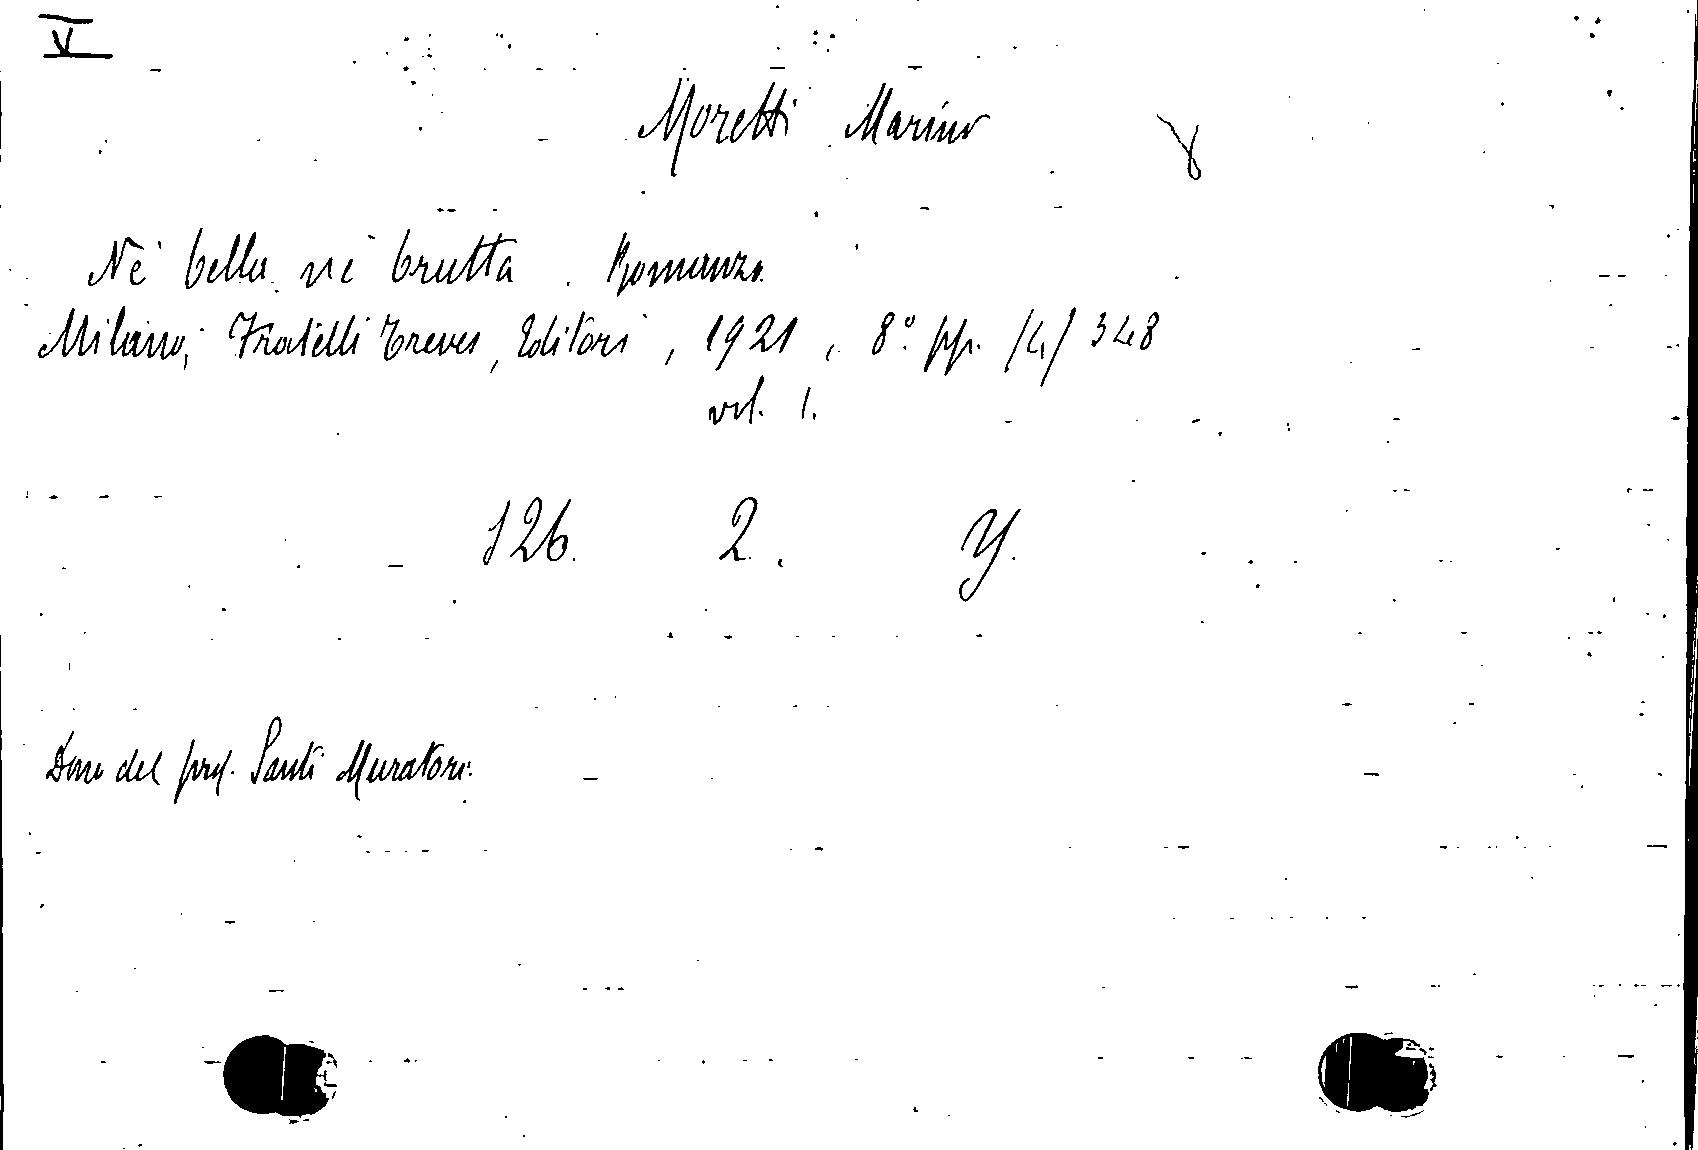 V
Moretti Marino
Nè bella nè brutta. Romanzo.
Milano, Fratelli Treves, Editori, 1921, 8° pp. /4/ 348
vol. 1.
126. 2. Y.
Dono del prof. Santi Muratori.